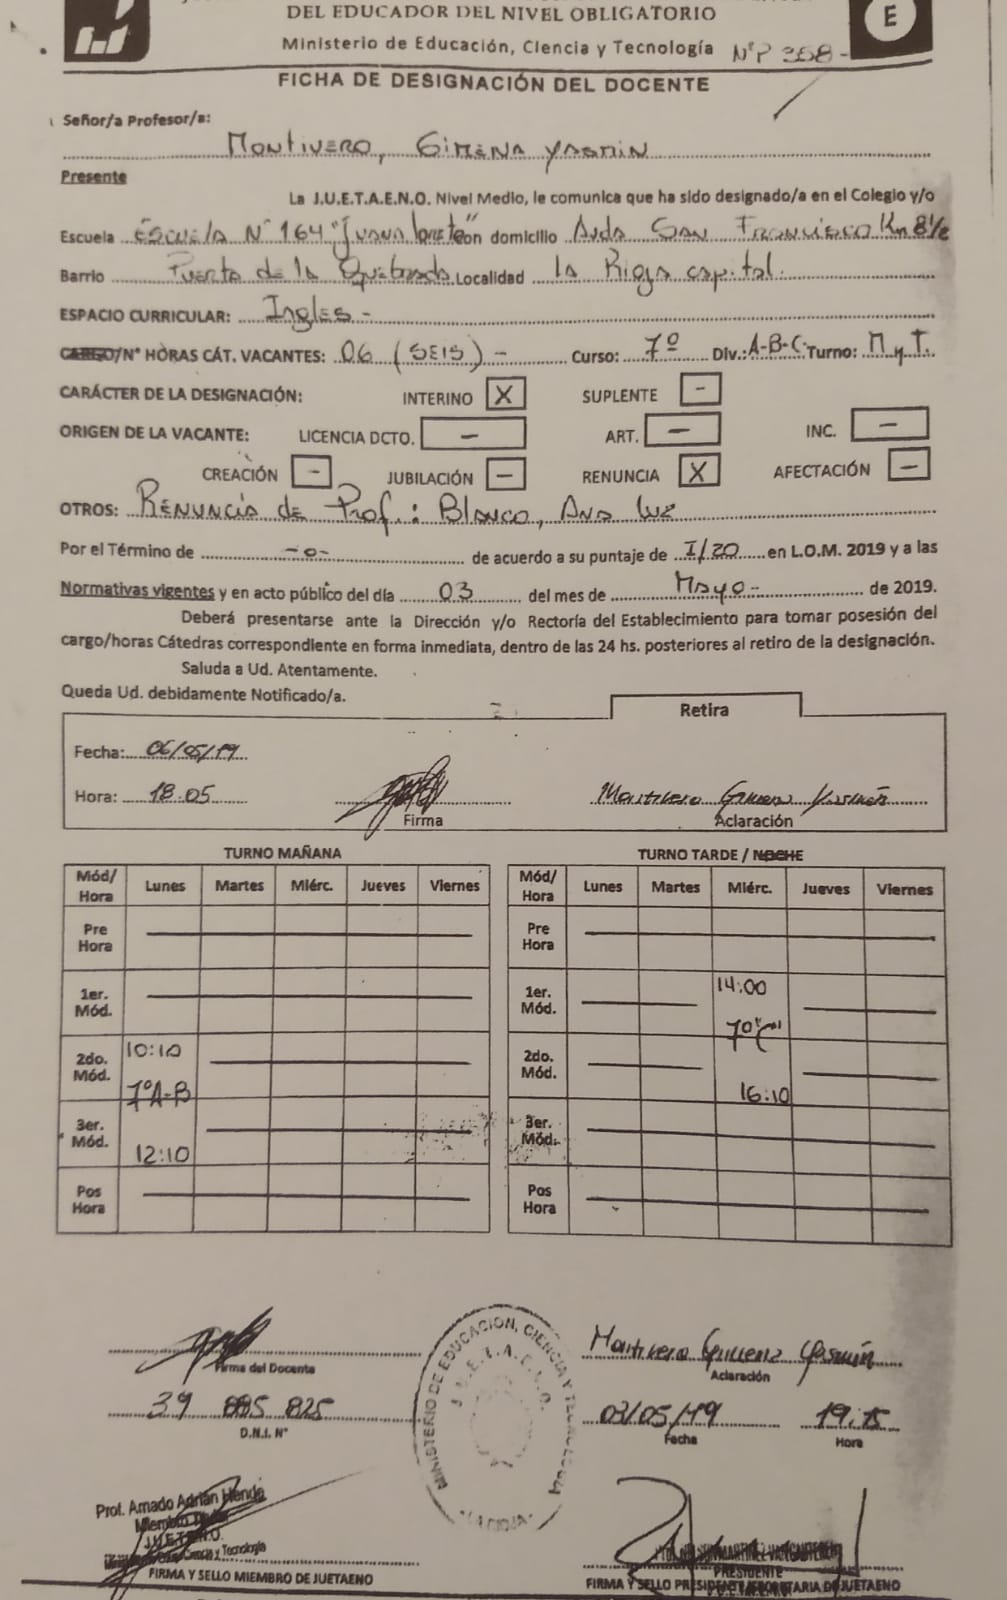 DEL EDUCADOR DEL NIVEL OBLIGATORIO
E
Ministerio de Educación, Ciencia y Tecnología Nº P 358-
FICHA DE DESIGNACIÓN DEL DOCENTE
Señor/a Profesor/a:
Montivero, Gimena Yasmin
Presente
La J.U.E.T.A.E.N.O. Nivel Medio, le comunica que ha sido designado/a en el Colegio y/o
Escuela Escuela Nº 164 "Juana con domicilio Avda San Francisco Km 8½
Barrio Puerta de la Quebrada Localidad La Rioja capital.
ESPACIO CURRICULAR: Ingles -
CARGO/N° HORAS CÁT. VACANTES: 06 (SEIS) - Curso: 7º Div.: A-B-C Turno: M y T.
CARÁCTER DE LA DESIGNACIÓN: INTERINO X SUPLENTE -
ORIGEN DE LA VACANTE: LICENCIA DCTO. - ART. - INC. -
CREACIÓN - JUBILACIÓN - RENUNCIA X AFECTACIÓN -
OTROS: Renuncia de Prof.: Blanco, Ana Luz
Por el Término de -o- de acuerdo a su puntaje de I/20 en L.O.M. 2019 y a las
Normativas vigentes y en acto público del día 03 del mes de Mayo- de 2019.
Deberá presentarse ante la Dirección y/o Rectoría del Establecimiento para tomar posesión del
cargo/horas Cátedras correspondiente en forma inmediata, dentro de las 24 hs. posteriores al retiro de la designación.
Saluda a Ud. Atentamente.
Queda Ud. debidamente Notificado/a.
Retira
Fecha: 06/05/19
Hora: 18:05 Montivero Gimena Yasmin
Firma Aclaración
TURNO MAÑANA TURNO TARDE / NOCHE
Mód/ Hora Lunes Martes Miérc. Jueves Viernes Mód/ Hora Lunes Martes Miérc. Jueves Viernes
Pre Hora Pre Hora
1er. Mód. 1er. Mód. 14:00
7º "C"
2do. Mód. 10:10 2do. Mód.
7º A-B 16:10
3er. Mód. 12:10 3er. Mód.
Pos Hora Pos Hora
Montivero Gimena Yasmin
Firma del Docente Aclaración
39 885 825 03/05/19 19:15
D.N.I. N° Fecha Hora
MINISTERIO DE EDUCACION, CIENCIA Y TECNOLOGIA
J.U.E.T.A.E.N.O.
LA RIOJA
Prof. Amado Adrián
Miembro
J.U.E.T.A.E.N.O.
Ciencia y Tecnología
PRESIDENTE
FIRMA Y SELLO MIEMBRO DE JUETAENO FIRMA Y SELLO DE JUETAENO